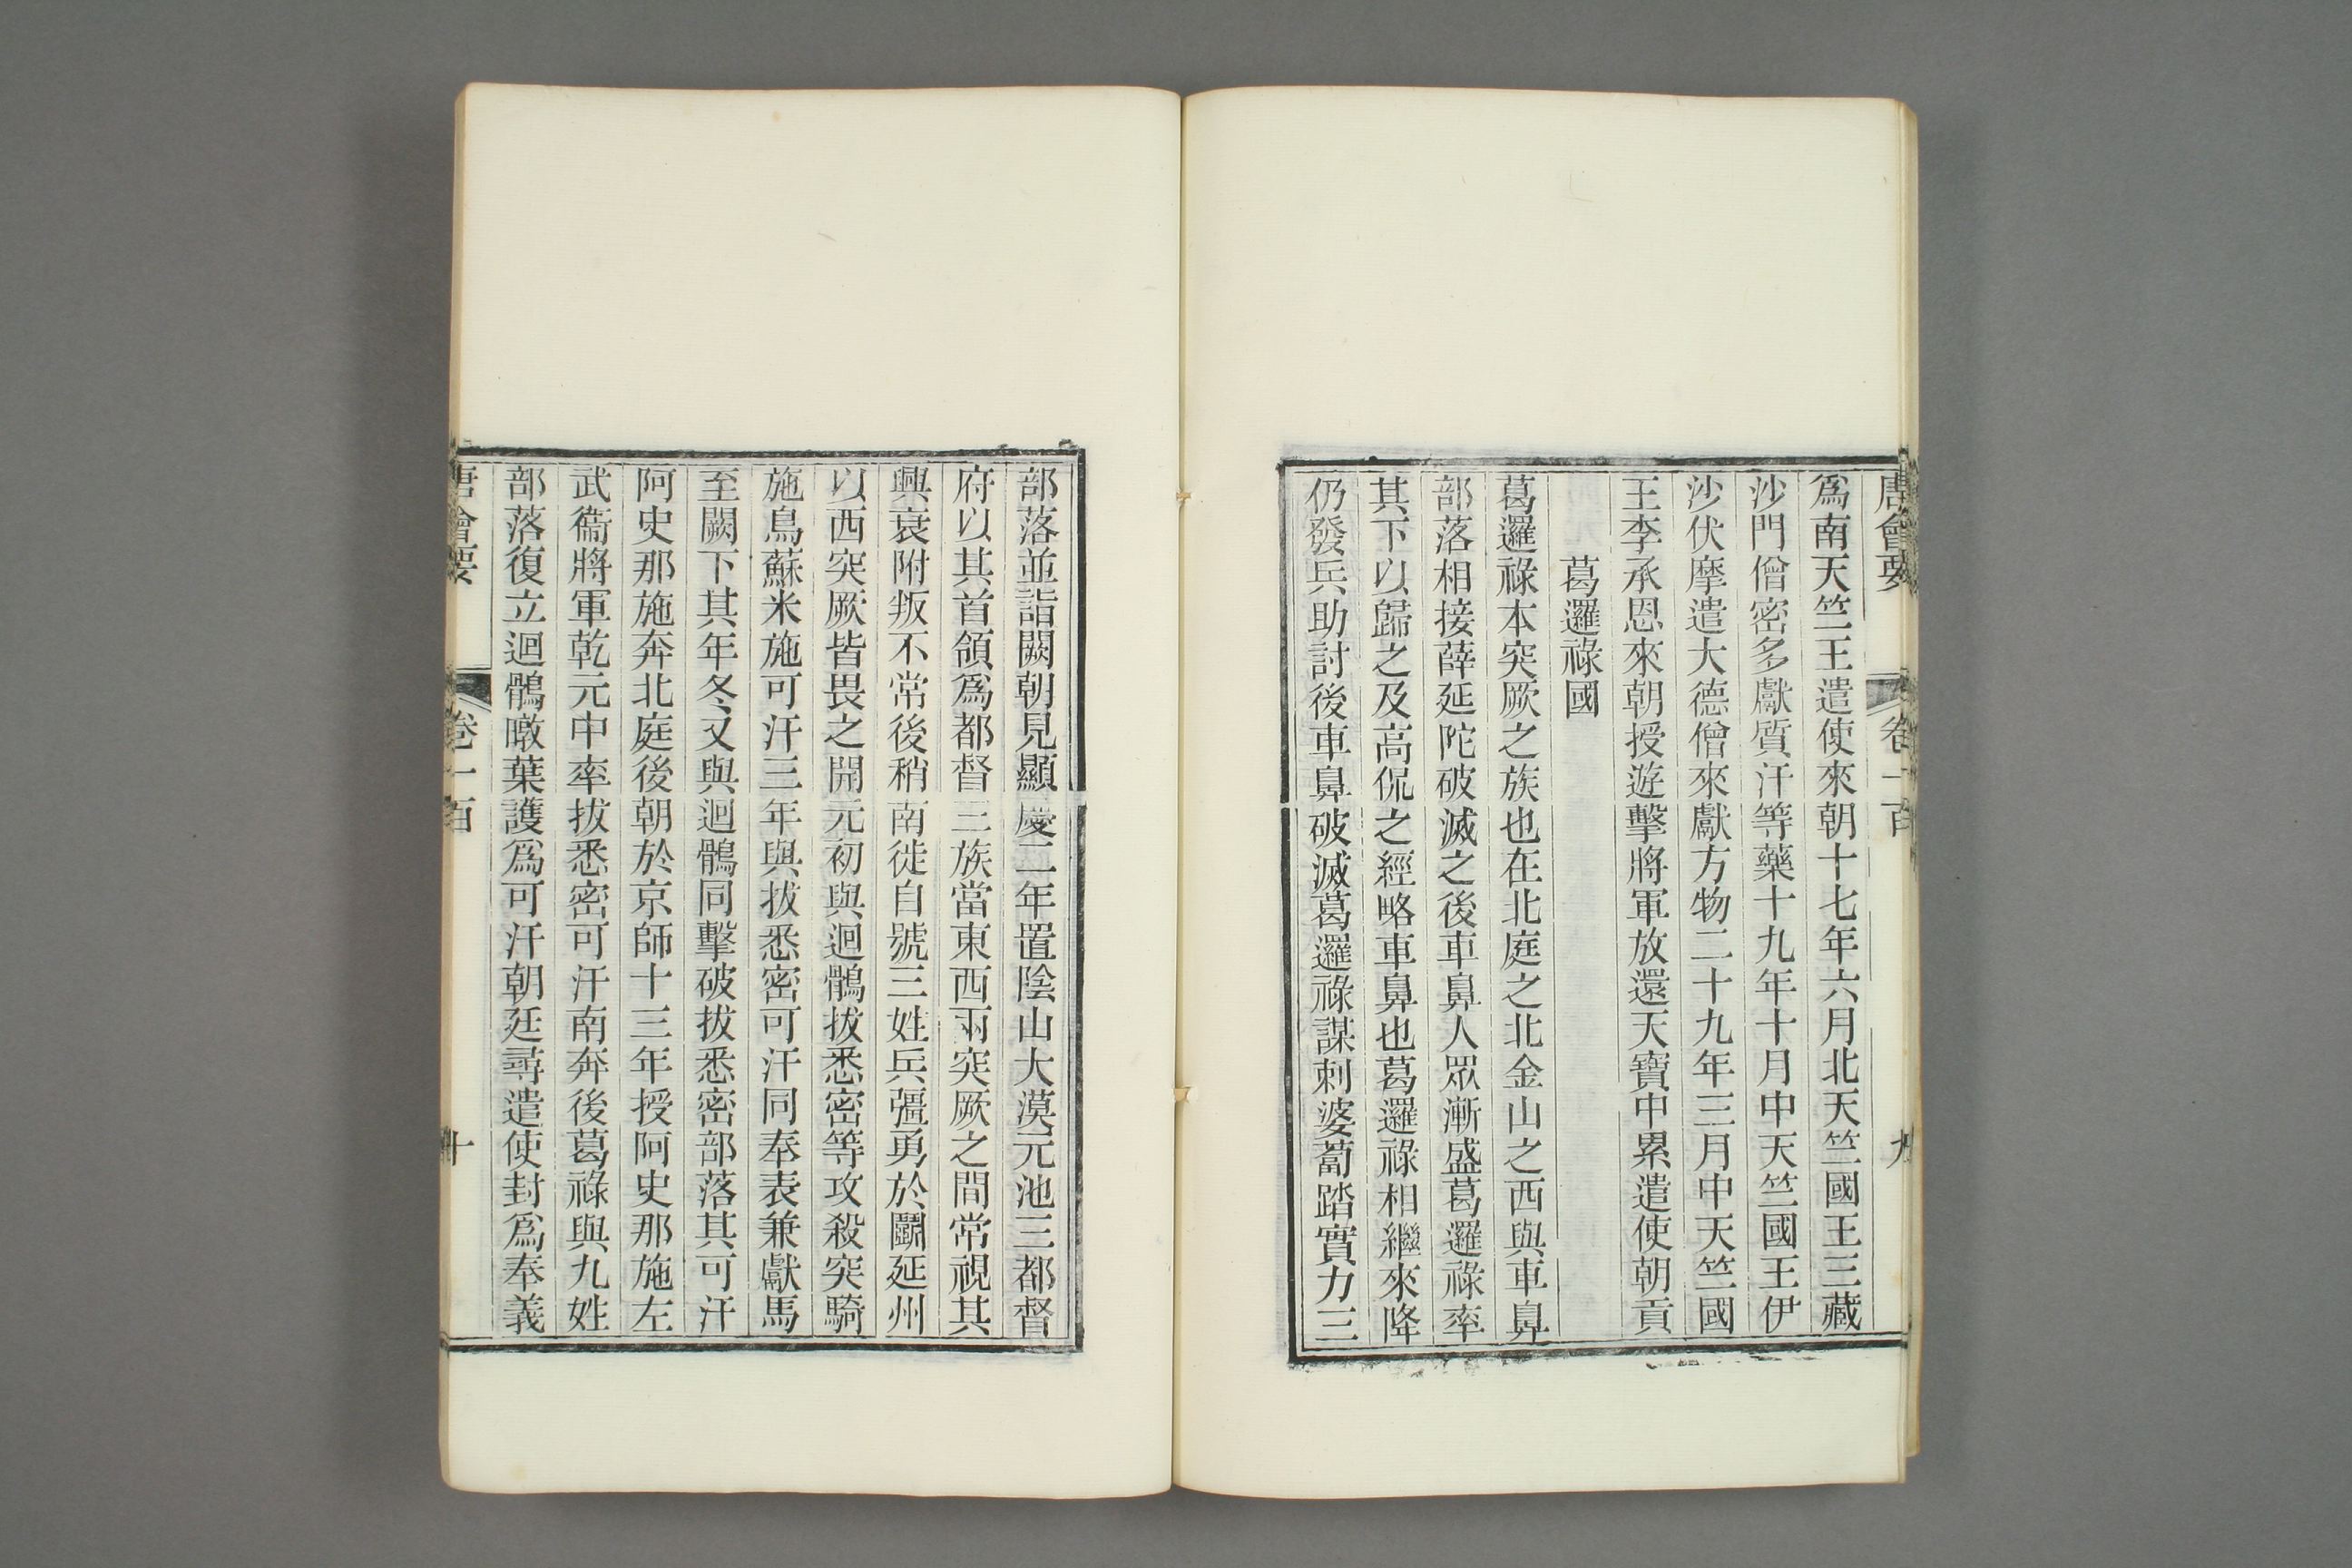 唐會要 卷一百 九
爲南天竺王遣使來朝十七年六月北天竺國王三藏
沙門僧密多獻質汗等藥十九年十月中天竺國王伊
沙伏摩遣大德僧來獻方物二十九年三月中天竺國
王李承恩來朝授遊擊將軍放還天寶中累遣使朝貢
葛邏祿國
葛邏祿本突厥之族也在北庭之北金山之西與車鼻
部落相接薛延陀破滅之後車鼻人眾漸盛葛邏祿率
其下以歸之及高侃之經略車鼻也葛邏祿相繼來降
仍發兵助討後車鼻破滅葛邏祿謀刺婆蔔踏實力三
部落並詣闕朝見顯慶二年置陰山大漠元池三都督
府以其首領爲都督三族當東西兩突厥之間常視其
興衰附叛不常後稍南徙自號三姓兵彊勇於鬭延州
以西突厥皆畏之開元初與迴鶻拔悉密等攻殺突騎
施鳥蘇米施可汗三年與拔悉密可汗同奉表兼獻馬
至闕下其年冬又與迴鶻同擊破拔悉密部落其可汗
阿史那施奔北庭後朝於京師十三年授阿史那施左
武衞將軍乾元中率拔悉密可汗南奔後葛祿與九姓
部落復立迴鶻暾葉護爲可汗朝廷尋遣使封爲奉義
唐會要 卷一百 十